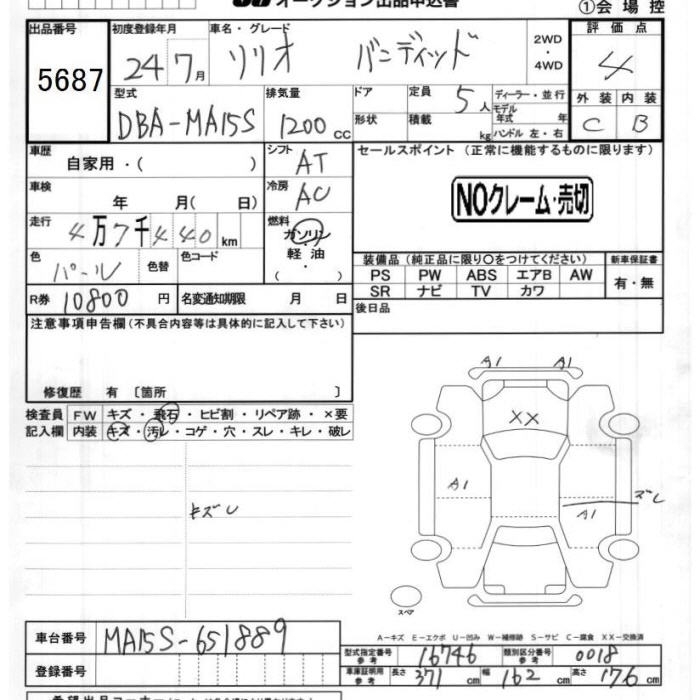 オークション出品申込書
①会場控
出品番号 初度登録年月 車名・グレード 2WD・4WD 評価点
5687 24 7月 ソリオ バンディッド 4
型式 排気量 ドア 定員 5人 ディーラー・並行 外装 内装
モデル年式 年
DBA-MA15S 1200cc 形状 積載 kg ハンドル 左・右 C B
車歴 自家用・( ) シフト AT セールスポイント (正常に機能するものに限ります)
車検 年 月( 日) 冷房 AC
NOクレーム・売切
走行 4万7千440km 燃料 ガソリン 軽油 ・( )
色 パール 色替 色コード
装備品 (純正品に限り○をつけてください) 新車保証書
PS PW ABS エアB AW 有・無
SR ナビ TV カワ
R券 10800円 名変通知期限 月 日
後日品
注意事項申告欄 (不具合内容等は具体的に記入して下さい)
修復歴 有 〔箇所 〕
検査員 FW キズ・飛石・ヒビ割・リペア跡・×要
記入欄 内装 キズ・汚レ・コゲ・穴・スレ・キレ・破レ
キズU
A1 A1
XX
A1
A1
スペア
A-キズ E-エクボ U-凹み W-補修跡 S-サビ C-腐食 XX-交換済
車台番号 MA15S-651889
登録番号
型式指定番号 参考 16746 類別区分番号 参考 0018
車庫証明用 参考 長さ 371cm 幅 162cm 高さ 176cm